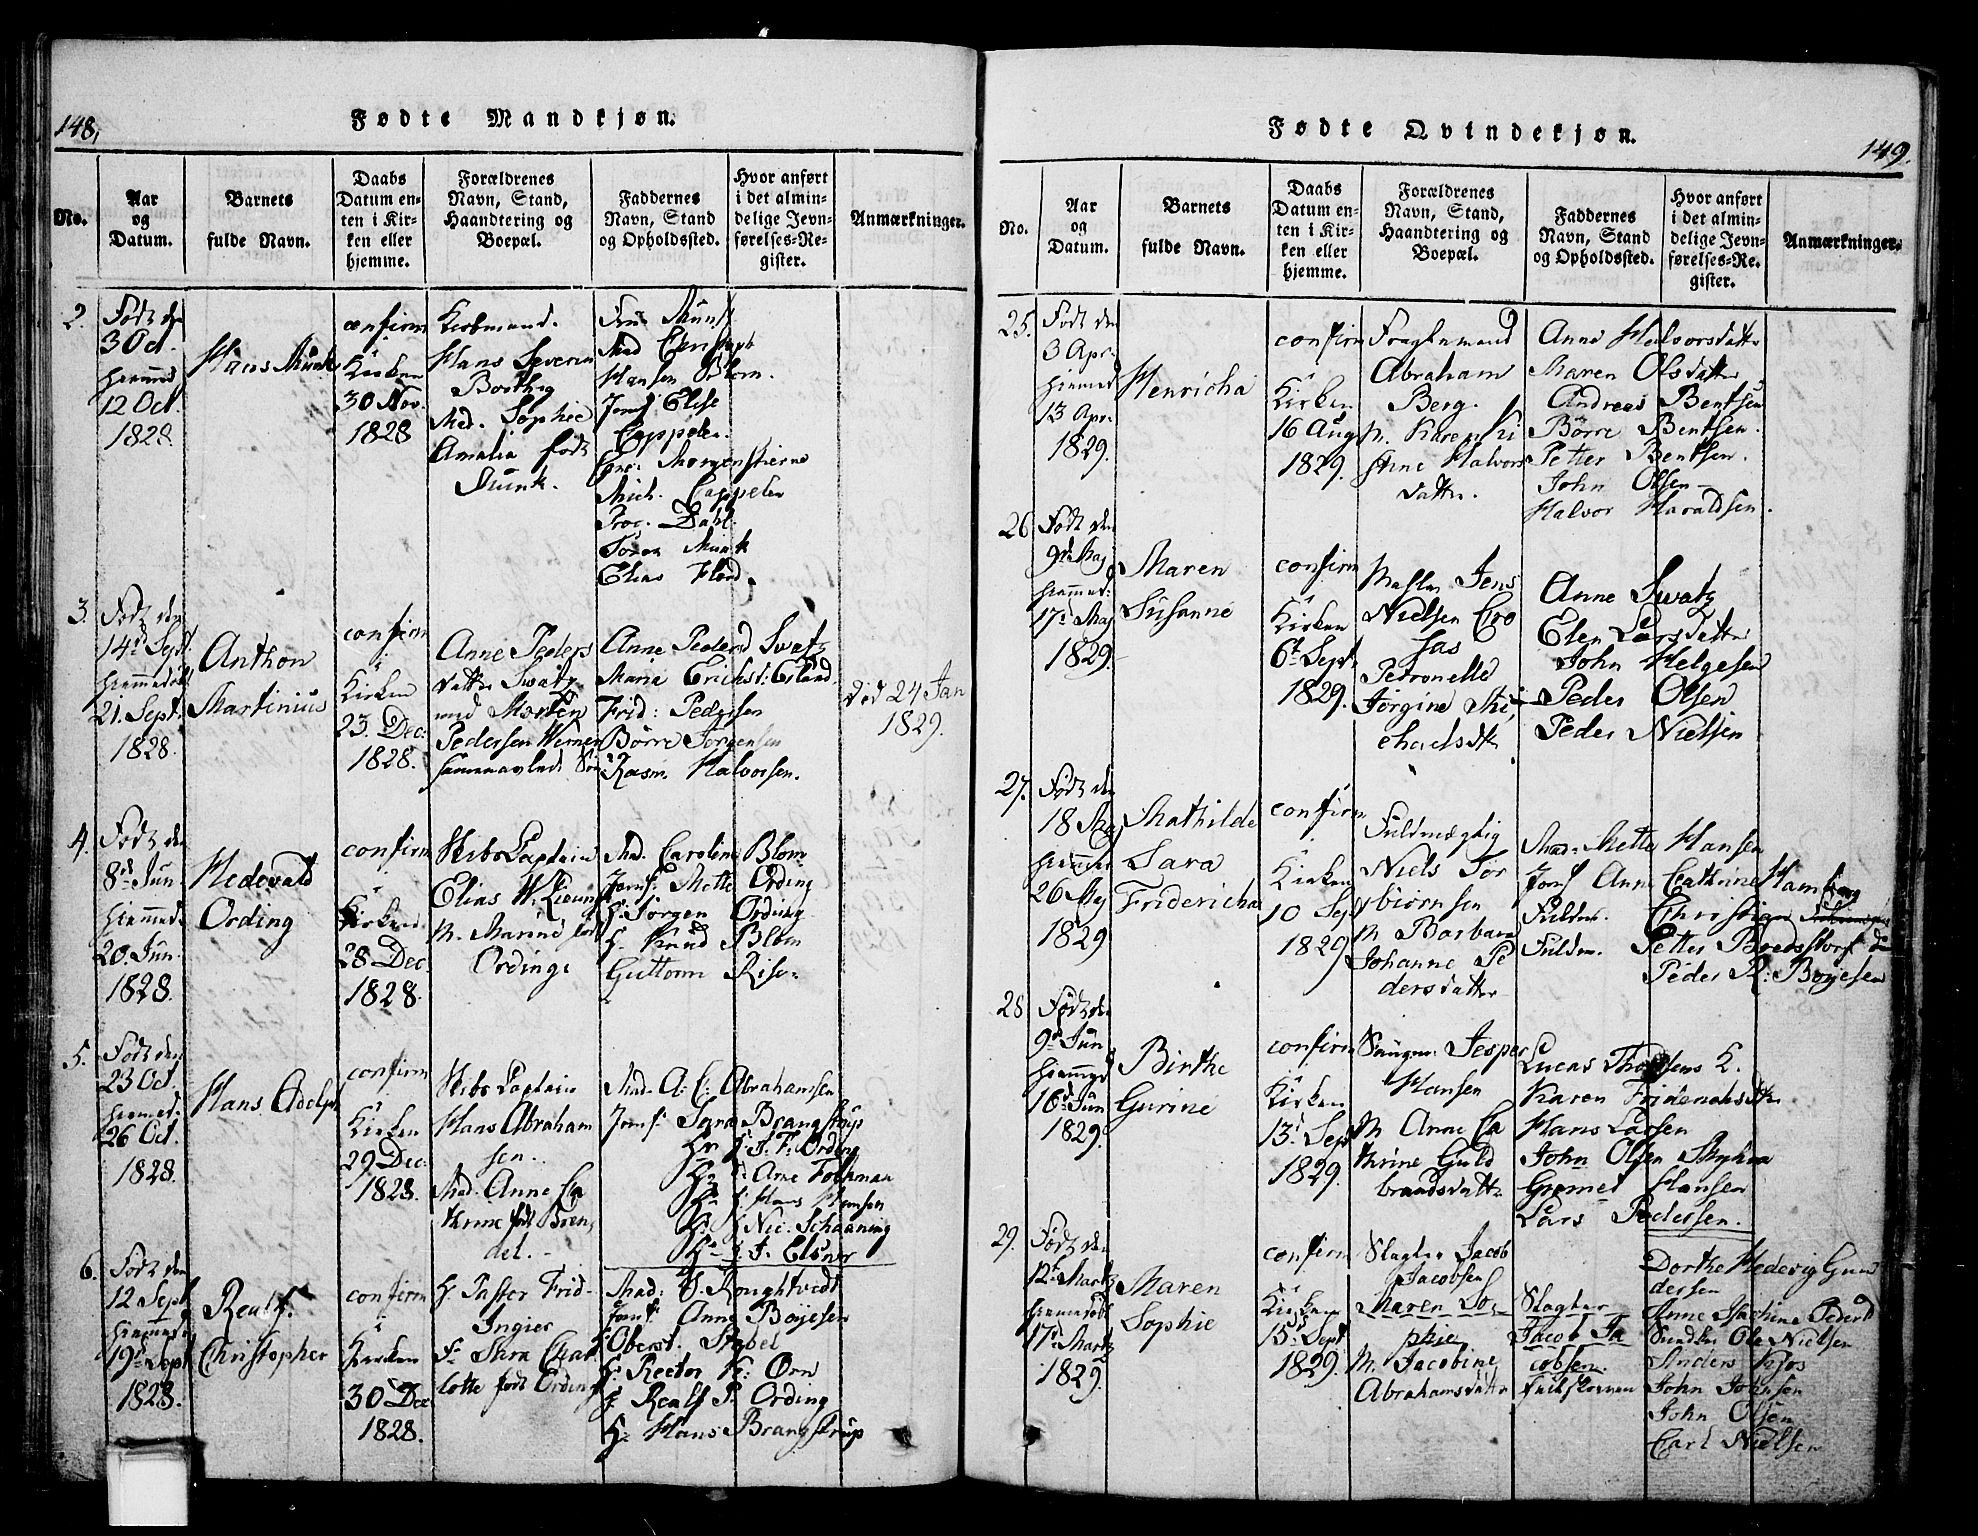 148,
Fødte Mandkjøn.
No.
Aar
og
Datum.
Barnets
fulde Navn.
Daabs
Datum en-
ten i Kir-
ken eller
hjemme.
Forældrenes
Navn, Stand,
Haandtering og
Boepæl.
Faddernes
Navn, Stand
og Opholdssted.
Hvor anført
i det almin-
delige Jevn-
førelses-Re-
gister.
Anmærkninger.
2.
Født den
3 Oct.
hiemmed
12 Oct.
1828.
Hans Munk
confirm
i
Kirken
30 Nov.
1828
Kiøbmand.
Hans Severin
Mad. Sophie
Amalia født
Munk.
Fru Munk
Mad Christoph
Hansen Blom.
Jomf Elise
Cappelen.
Morgenstierne
Mich. Cappelen
Proc. Dahl.
Munk
Elias Flood.
3.
Født den
14de Sept.
hiemmedøbt
21. Sept.
1828.
Anthon
Martinius
confirm
i
Kirken
23. Dec.
1828.
Anne Peders
datter Swatz
med Morten
Pedersen Werner
Anne Pedersd Swatz
Maria Erichsd: Eeland
Frid: Pedersen
Børre Jørgensen
Rasm. Halvorsen.
Død 24 Jan
1829.
4.
Født den
8de Jun
hiemmed.
20. Jun.
1828.
Hedevald
Ording
confirm
i
Kirken
28 Dec.
1828.
Skibs Captain
Elias W.
M. Marine født
Ording.
Mad. Caroline Blom
Jomf. Mette Ording
H. Jørgen Ording
H. Knud Blom
Guttorm Rise.
5.
Født den
23 Oct.
hiemmed.
26 Oct.
1828.
Hans Adolph
confirm
i
Kirken
29 Dec:
1828.
Skibs Captain
Hans Abraham
sen.
Mad. Anne Ca
thrine født Bren
del.
Mad. A: C: Abrahamsen
Jomf: Sara Brangstrup
Hr J: F: Ording
Hr Arne Folkman
Hr Hans Hansen
Hr Nic. Schaaning
Hr J: Elsner
6.
Født den
12 Sept
hiemmed.
19de Sept
1828.
Realf.
Christopher
confirm
i
Kirken
30 Dec
1828.
H. Pastor Frid-
Ingier
Fr Sara Char
lotte født Ording
Mad: V. Roughtvedt
Jomf: Anne Boyesen
Oberst. Stabel
H. Rector Fr. Ørn
H. Realf P. Ording
H. Hans Brangstrup
Fødte Qvindekjøn.
149.
No.
Aar
og
Datum.
Barnets
fulde Navn.
Daabs
Datum en-
ten i Kir-
ken eller
hjemme.
Forældrenes
Navn, Stand,
Haandtering og
Boepæl.
Faddernes
Navn, Stand
og Opholdssted.
Hvor anført
i det almin-
delige Jevn-
førelses-Re-
gister.
Anmærkninger.
25.
Født den
3 Apr.
hiemmed
13 Apr.
1829.
Henricha
confirm
i
Kirken
16 Aug
1829.
Fragtemand
Abraham
Berg.
M. Karen Ki
stine Halvors
datter.
Anne Halvorsdatter
Maren Olsdatter
Andreas Bentsen
Børre Bentsen.
Petter Bentsen.
John Olsen
Halvor Haraldsen.
26
Født den
9de Maj
hiemmed:
17de Maj
1829.
Maren
Susanne
confirm
i
Kirken
6te Sept
1829.
Mathr Jens
Nielsen Cro
gas
Petronelle
Jørgine Mi
chaelsdtr
Anne Swatz
Elen Larsdatter
John Helgesen
Peder Olsen
Peder Nielsen
27.
Født den
18 Maj
hiemmed
26 Maj
1829
Mathilde
Sara
Fridericha
confirm
i
Kirken
10 Sept
1829
Fuldmægtig
Niels Tor
biørnsen
M Barbara
Johanne Pe
dersdatter
Mad: Mette Hansen
Jomf Anne Cathrine Hamborg
Fuldm. Christian
Fuldm. Petter Bredsdorf
Peder R: Boyesen
28
Født den
9de Jun
hiemmed
16de Jun
1829.
Birthe
Gurine
confirm
i
Kirken
13. Sept
1829.
Snuger. Jesper
Hansen
M Anne Ca
thrine Guld
brandsdatter
Lucas Thomsens K.
Karen Friderichsdtr
Hans Larsen
John Olsen
Gremet Hansen
Lars Pedersen.
29.
Født den
12te Martz
hiemmedøbt
17de Martz
1829.
Maren
Sophie
confirm
i
Kirken
15. Sept
1829.
Slagter Jacob
Jacobsen
Maren So-
phie
M. Jacobine
Abrahamsdatter
Slagter
Jacob Ja
cobsen.
Dorthe Hedevig Gun
dersen
Anne Jachine Pedersd
Ole Nielsen
Anders Kjos
John Johnsen
John Olsen
Carl Nielsen